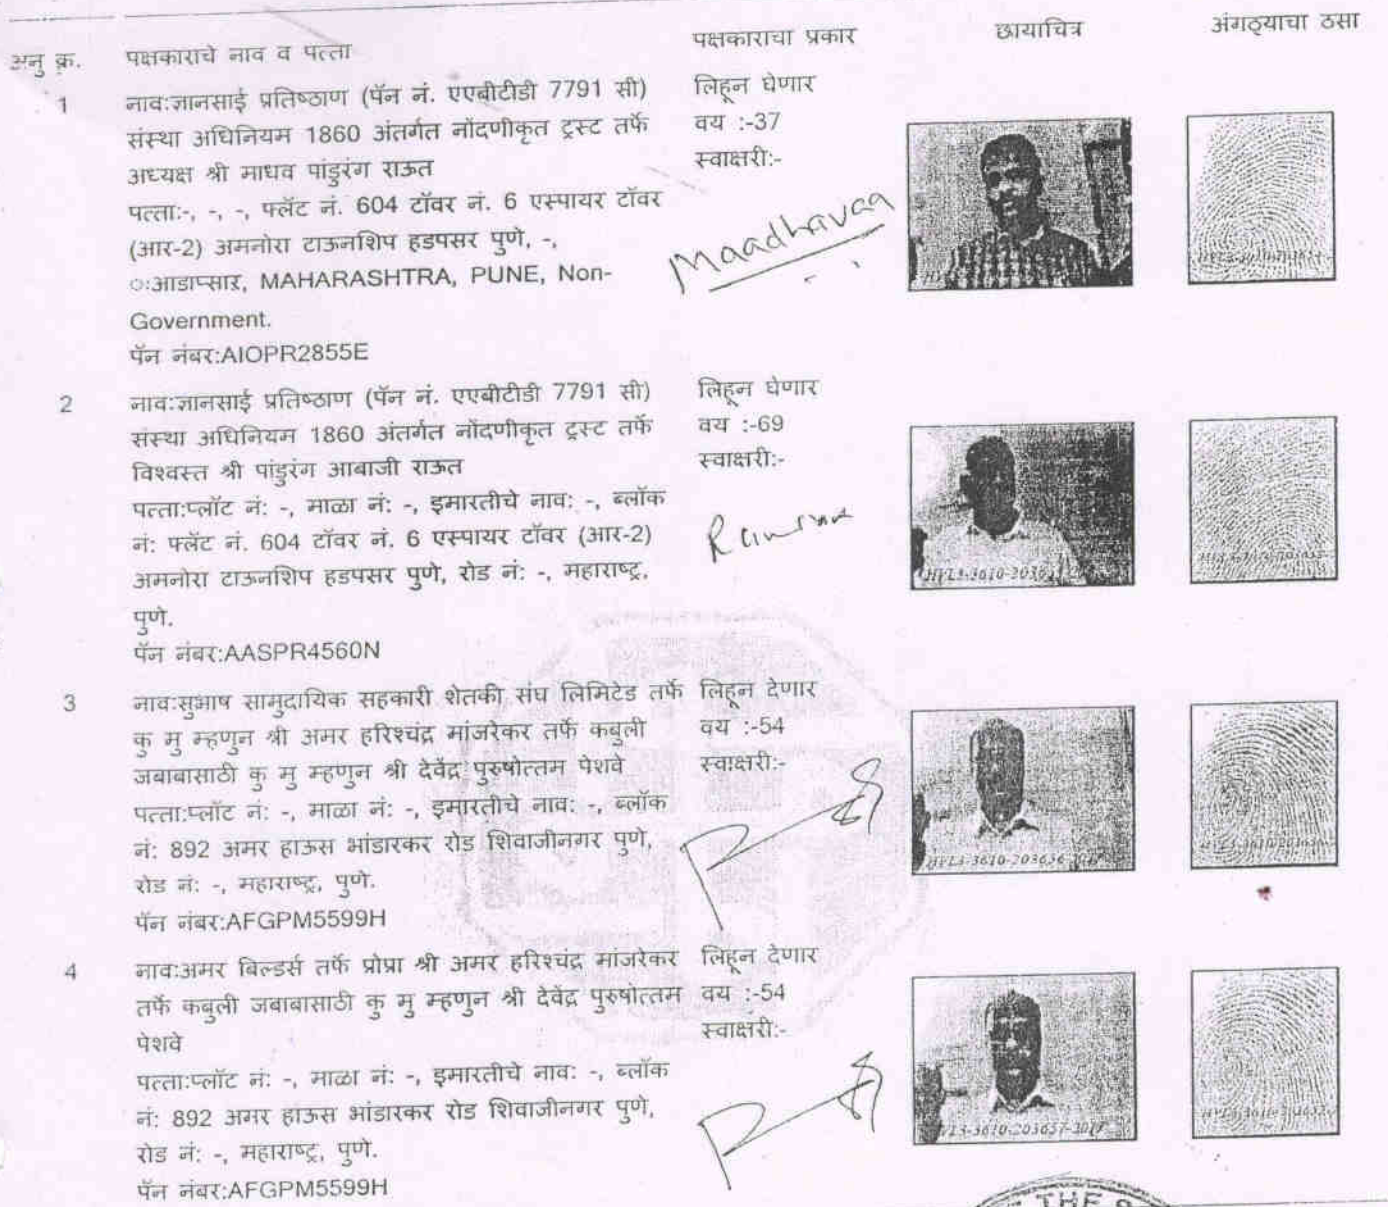 अनु क्र. पक्षकाराचे नाव व पत्ता पक्षकाराचा प्रकार छायाचित्र अंगठ्याचा ठसा
1 नाव:ज्ञानसाई प्रतिष्ठाण (पॅन नं. एएबीटीडी 7791 सी) लिहून घेणार
संस्था अधिनियम 1860 अंतर्गत नोंदणीकृत ट्रस्ट तर्फे वय :-37
अध्यक्ष श्री माधव पांडुरंग राऊत स्वाक्षरी:-
पत्ता:-, -, -, फ्लॅट नं. 604 टॉवर नं. 6 एस्पायर टॉवर
(आर-2) अमनोरा टाऊनशिप हडपसर पुणे, -,
ःआडाप्साऱ, MAHARASHTRA, PUNE, Non-
Government.
पॅन नंबर:AIOPR2855E
Maadhavaa
2 नाव:ज्ञानसाई प्रतिष्ठाण (पॅन नं. एएबीटीडी 7791 सी) लिहून घेणार
संस्था अधिनियम 1860 अंतर्गत नोंदणीकृत ट्रस्ट तर्फे वय :-69
विश्वस्त श्री पांडुरंग आबाजी राऊत स्वाक्षरी:-
पत्ता:प्लॉट नं: -, माळा नं: -, इमारतीचे नाव: -, ब्लॉक
नं: फ्लॅट नं. 604 टॉवर नं. 6 एस्पायर टॉवर (आर-2)
अमनोरा टाऊनशिप हडपसर पुणे, रोड नं: -, महाराष्ट्र,
पुणे.
पॅन नंबर:AASPR4560N
3 नाव:सुभाष सामुदायिक सहकारी शेतकी संघ लिमिटेड तर्फे लिहून देणार
कु मु म्हणुन श्री अमर हरिश्चंद्र मांजरेकर तर्फे कबुली वय :-54
जबाबासाठी कु मु म्हणुन श्री देवेंद्र पुरुषोत्तम पेशवे स्वाक्षरी:-
पत्ता:प्लॉट नं: -, माळा नं: -, इमारतीचे नाव: -, ब्लॉक
नं: 892 अमर हाऊस भांडारकर रोड शिवाजीनगर पुणे,
रोड नं: -, महाराष्ट्र, पुणे.
पॅन नंबर:AFGPM5599H
HVL3-3610-203636-2017
4 नाव:अमर बिल्डर्स तर्फे प्रोप्रा श्री अमर हरिश्चंद्र मांजरेकर लिहून देणार
तर्फे कबुली जबाबासाठी कु मु म्हणुन श्री देवेंद्र पुरुषोत्तम वय :-54
पेशवे स्वाक्षरी:-
पत्ता:प्लॉट नं: -, माळा नं: -, इमारतीचे नाव: -, ब्लॉक
नं: 892 अमर हाऊस भांडारकर रोड शिवाजीनगर पुणे,
रोड नं: -, महाराष्ट्र, पुणे.
पॅन नंबर:AFGPM5599H
THE